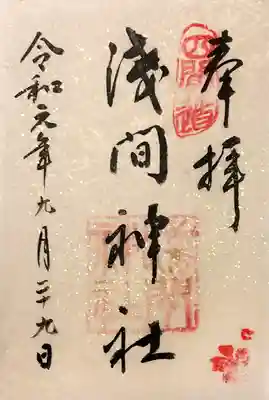 奉拝
浅間神社
令和元年九月二十九日